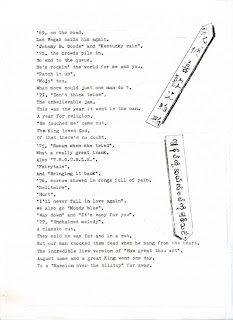 '69, on the road,
Las Vegas calls him again,
"Johnny B. Goode" and "Kentucky rain",
'70, the crowds pile in,
No end to the queue.
He's rockin' the world for me and you,
"Patch it up",
"Mojo" too,
What more could just one man do ?.
'71, "Don't think twice",
The unbelievable jam,
This was the year it went in the can,
A year for religion,
"He touched me" came out,
The King loved God,
Of that there's no doubt.
'75, "Susan when she tried",
What a really great track,
Also "T.R.O.U.B.L.E."
"Fairytale",
And "Bringing it back",
'76, sorrow showed in songs full of pain,
"Solitaire",
"Hurt",
"I'll never fall in love again".
We also go "Moody blue",
"Way down" and "It's easy for you",
'77, "Unchained melody",
A classic cut,
They said he was fat and in a rut,
But our man knocked them dead when he sang from the heart,
The incredible live version of "How great thou art",
August came and a great King went one day,
To a "Mansion over the hilltop" far away.